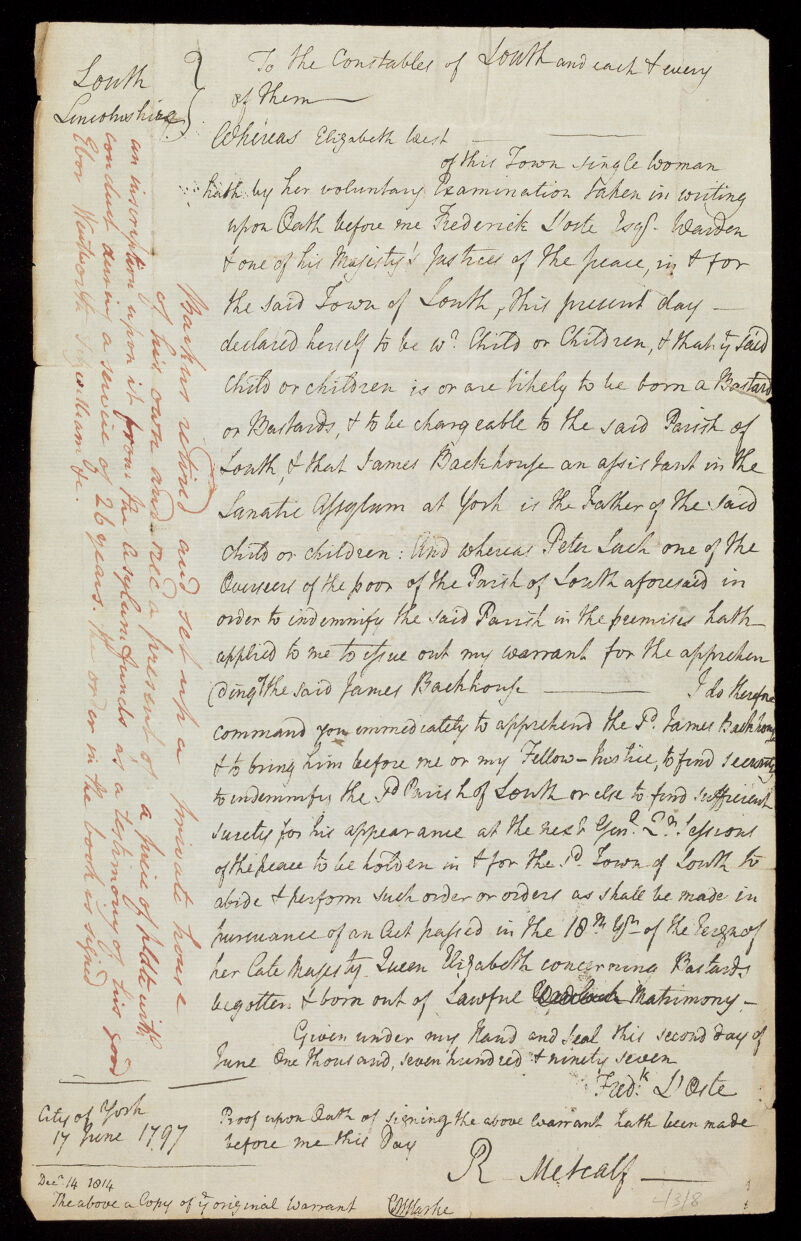 Louth
Lincolnshire
To the Constables of Louth and each & every
of them
Whereas Elizabeth West
of this Town single Woman
hath by her voluntary Examination taken in writing
upon Oath before me Frederick L'oste Esqr. Warden
& one of his Majesty's Justices of the peace, in & for
the said Town of Louth, this present day
declared herself to be wh. Child or Children, & that ye said
Child or children is or are likely to be born a Bastard
or Bastards, & to be chargeable to the said Parish of
Louth, & that James Backhouse an assistant in the
Lunatic Assylum at York is the Father of the said
child or children: And whereas Peter Lach one of the
Overseers of the poor of the Parish of Louth aforesaid in
order to indemnify the said Parish in the premises hath
applied to me to issue out my warrant for the apprehen
ding the said James Backhouse I do therefore
command you immediately to apprehend the Sd. James Backhouse
& to bring him before me or my Fellow-Justice, to find security
to indemnify the Sd Parish of Louth or else to find sufficient
surety for his appearance at the next Genl. Qr. Sessions
of the peace to be holden in & for the sd. Town of Louth to
abide & perform such order or orders as shall be made in
pursuance of an Act passed in the 18th Yr. of the Reign of
her late Majesty Queen Elizabeth concerning Bastards
begotten & born out of Lawful Wedlock Matrimony.
Given under my Hand and Seal this second day of
June One thousand, seven hundred & ninety seven
Fredk L'Oste
City of York
17 June 1797
Proof upon Oath of signing the above Warrant hath been made
before me this Day
R Metcalf
Decr 14 1814
The above a Copy of ye original Warrant
4318
Backus retired and set up a private house
of his own and rec'd a present of a piece of plate with
an inscription upon it from the Asylum funds as a testimony of his good
conduct during a service of 26 years. The order in the book is signed
Ebor Wentworth Fitzwilliam &c.